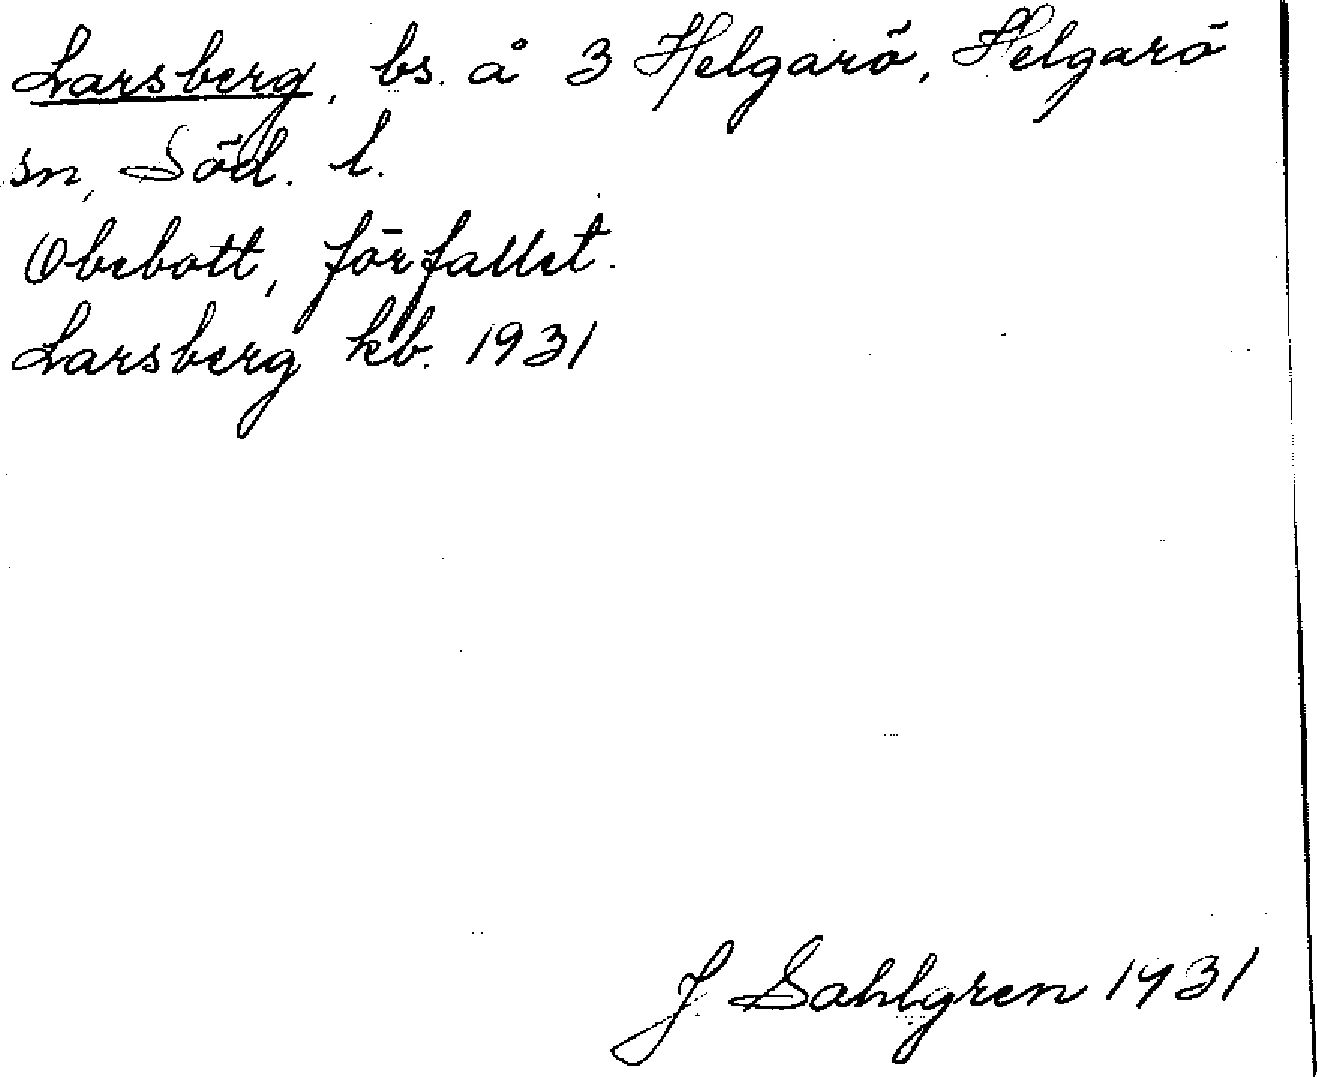 Larsberg, bs. å 3 Helgarö, Helgarö
sn, Söd. l.
Obebott, förfallet.
Larsberg kb. 1931
J Sahlgren 1931